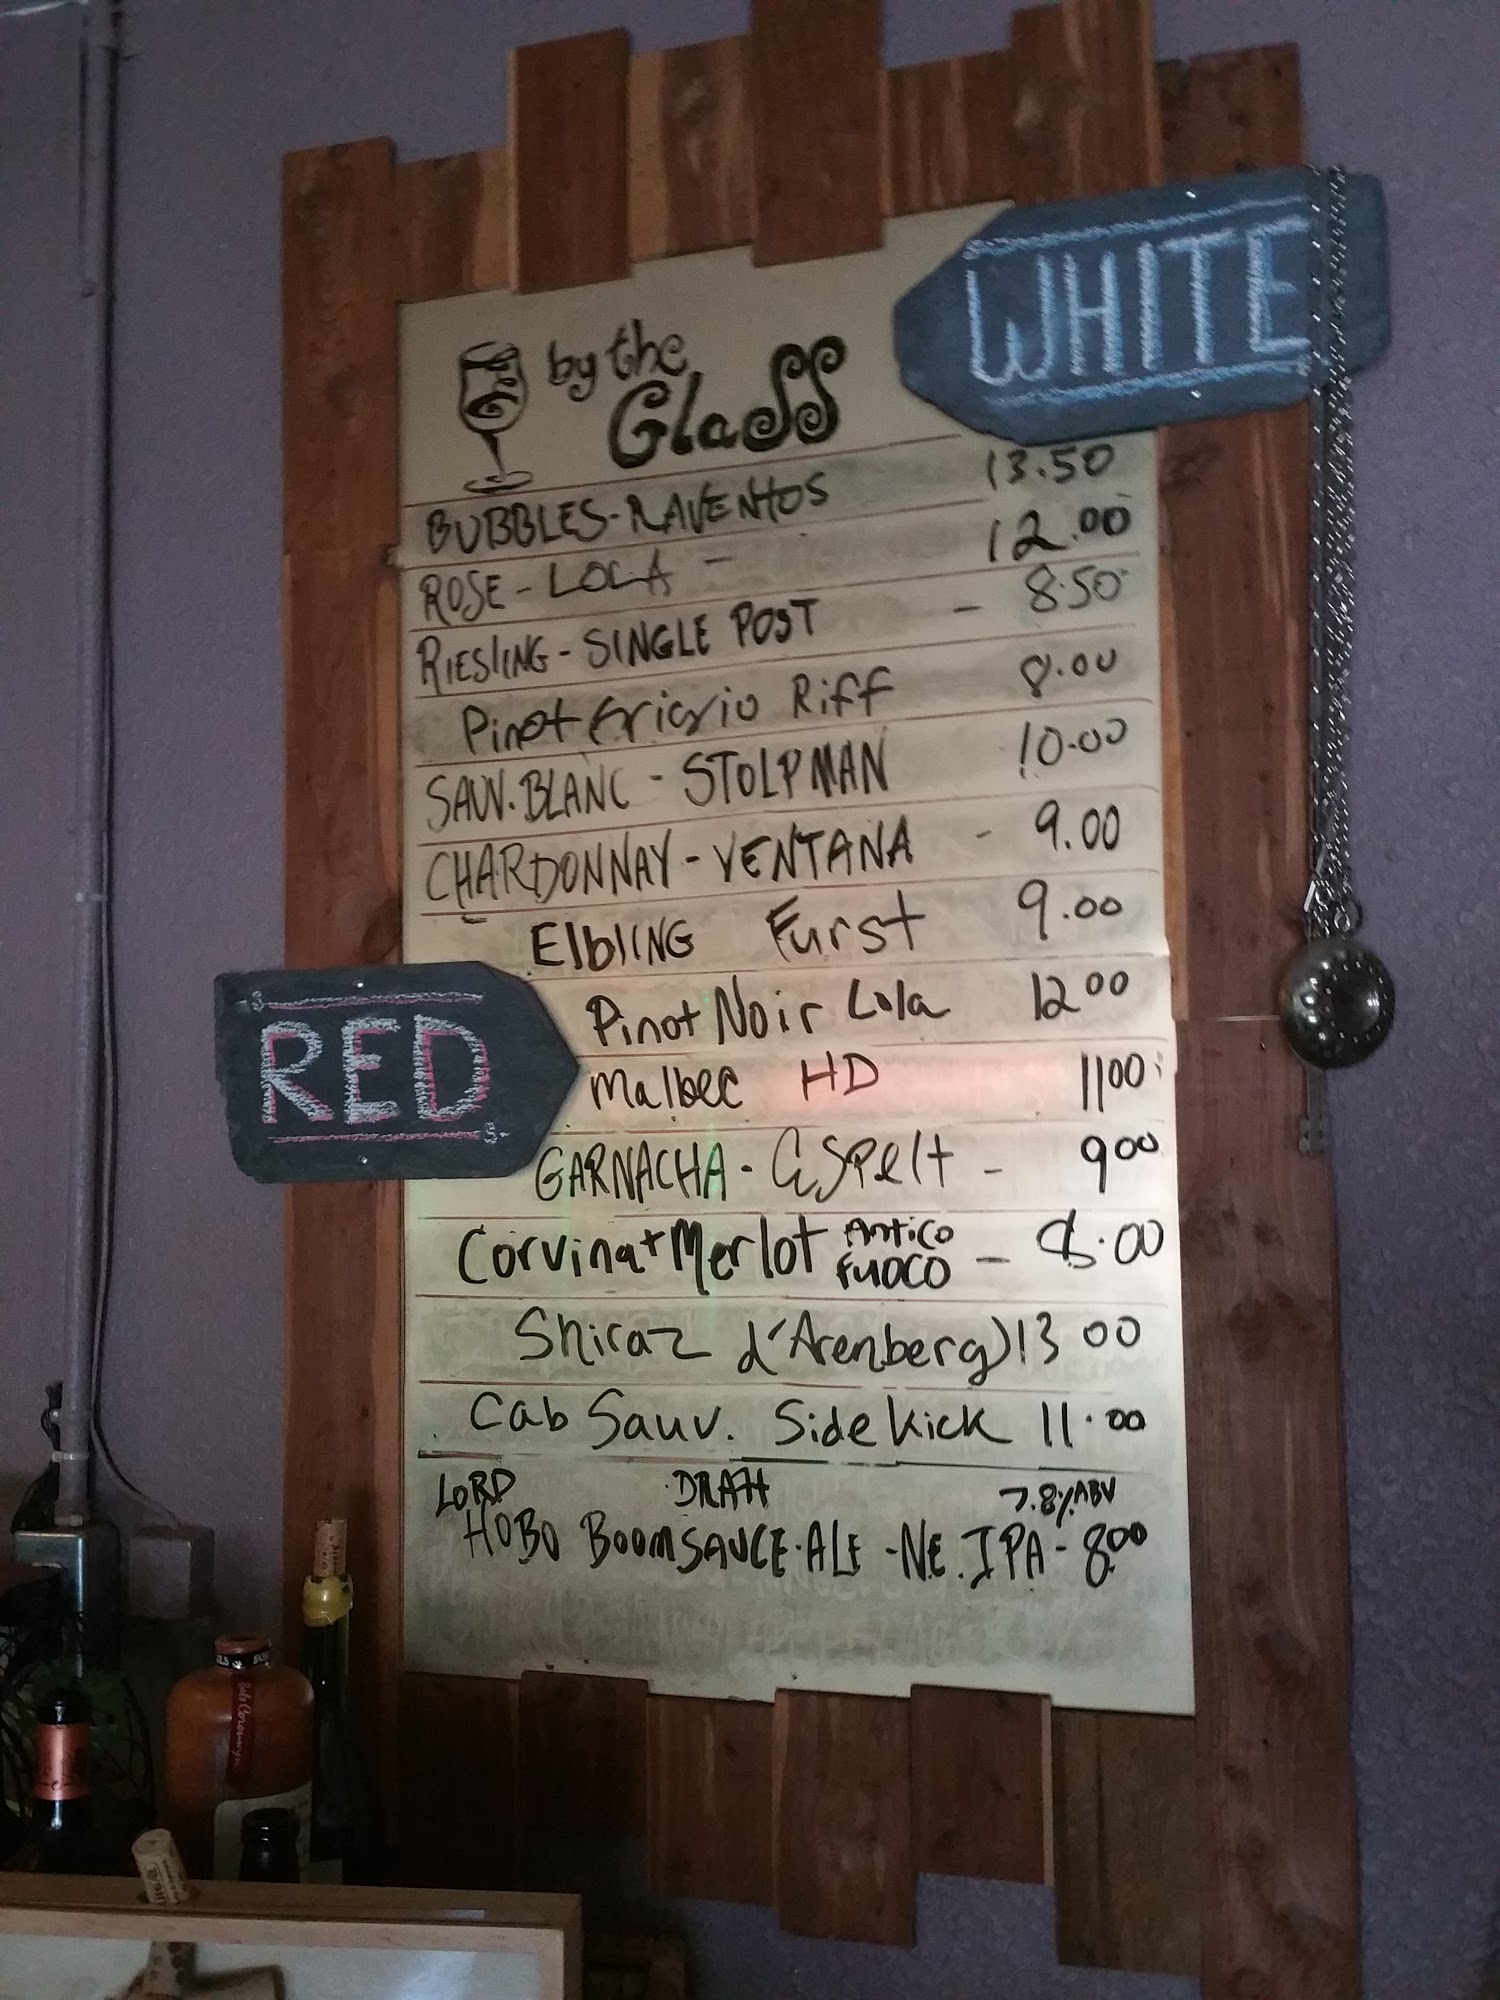 by the
Glass
WHITE
BUBBLES - RAVENTOS 13.50
ROSE - LOLA - 12.00
RIESLING - SINGLE POST - 8.50
Pinot Grigrio Riff 8.00
SAUV. BLANC - STOLPMAN 10.00
CHARDONNAY - VENTANA - 9.00
ElblING Furst 9.00
RED
Pinot Noir Lola 12 00
Malbec HD 11 00
GARNACHA - ESPElt - 9 00
Corvina + Merlot Antico
FUOCO - 8.00
Shiraz d'Arenberg) 13 00
Cab Sauv. Side Kick 11.00
LORD DRAft 7.8% ABV
HOBO BOOMSAUCE - ALE - NE. IPA - 8.00